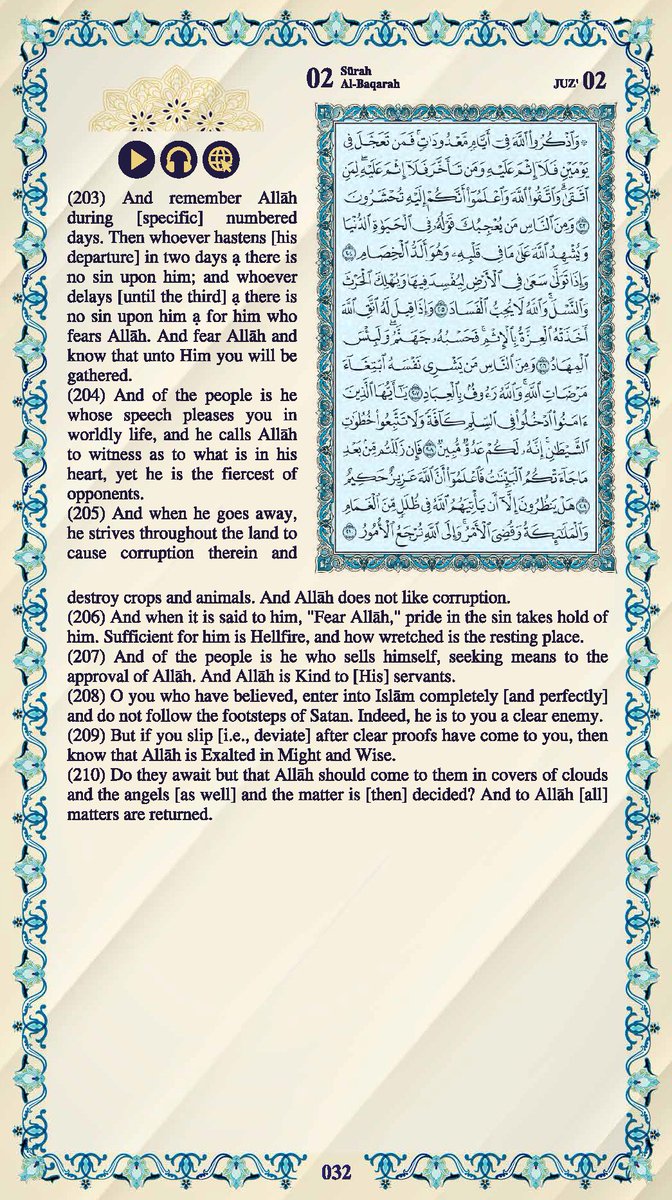 02 Sūrah
Al-Baqarah
JUZ' 02
۞ وَٱذْكُرُوا۟ ٱللَّهَ فِىٓ أَيَّامٍ مَّعْدُودَٰتٍ ۚ فَمَن تَعَجَّلَ فِى
يَوْمَيْنِ فَلَآ إِثْمَ عَلَيْهِ وَمَن تَأَخَّرَ فَلَآ إِثْمَ عَلَيْهِ ۚ لِمَنِ
ٱتَّقَىٰ ۗ وَٱتَّقُوا۟ ٱللَّهَ وَٱعْلَمُوٓا۟ أَنَّكُمْ إِلَيْهِ تُحْشَرُونَ
٢٠٣ وَمِنَ ٱلنَّاسِ مَن يُعْجِبُكَ قَوْلُهُۥ فِى ٱلْحَيَوٰةِ ٱلدُّنْيَا
وَيُشْهِدُ ٱللَّهَ عَلَىٰ مَا فِى قَلْبِهِۦ وَهُوَ أَلَدُّ ٱلْخِصَامِ ٢٠٤
وَإِذَا تَوَلَّىٰ سَعَىٰ فِى ٱلْأَرْضِ لِيُفْسِدَ فِيهَا وَيُهْلِكَ ٱلْحَرْثَ
وَٱلنَّسْلَ ۗ وَٱللَّهُ لَا يُحِبُّ ٱلْفَسَادَ ٢٠٥ وَإِذَا قِيلَ لَهُ ٱتَّقِ ٱللَّهَ
أَخَذَتْهُ ٱلْعِزَّةُ بِٱلْإِثْمِ ۚ فَحَسْبُهُۥ جَهَنَّمُ ۚ وَلَبِئْسَ
ٱلْمِهَادُ ٢٠٦ وَمِنَ ٱلنَّاسِ مَن يَشْرِى نَفْسَهُ ٱبْتِغَآءَ
مَرْضَاتِ ٱللَّهِ ۗ وَٱللَّهُ رَءُوفٌۢ بِٱلْعِبَادِ ٢٠٧ يَٰٓأَيُّهَا ٱلَّذِينَ
ءَامَنُوا۟ ٱدْخُلُوا۟ فِى ٱلسِّلْمِ كَآفَّةً وَلَا تَتَّبِعُوا۟ خُطُوَٰتِ
ٱلشَّيْطَٰنِ ۚ إِنَّهُۥ لَكُمْ عَدُوٌّ مُّبِينٌ ٢٠٨ فَإِن زَلَلْتُم مِّنۢ بَعْدِ
مَا جَآءَتْكُمُ ٱلْبَيِّنَٰتُ فَٱعْلَمُوٓا۟ أَنَّ ٱللَّهَ عَزِيزٌ حَكِيمٌ
٢٠٩ هَلْ يَنظُرُونَ إِلَّآ أَن يَأْتِيَهُمُ ٱللَّهُ فِى ظُلَلٍ مِّنَ ٱلْغَمَامِ
وَٱلْمَلَٰٓئِكَةُ وَقُضِىَ ٱلْأَمْرُ ۚ وَإِلَى ٱللَّهِ تُرْجَعُ ٱلْأُمُورُ ٢١٠
(203) And remember Allāh
during [specific] numbered
days. Then whoever hastens [his
departure] in two days ạ there is
no sin upon him; and whoever
delays [until the third] ạ there is
no sin upon him ạ for him who
fears Allāh. And fear Allāh and
know that unto Him you will be
gathered.
(204) And of the people is he
whose speech pleases you in
worldly life, and he calls Allāh
to witness as to what is in his
heart, yet he is the fiercest of
opponents.
(205) And when he goes away,
he strives throughout the land to
cause corruption therein and
destroy crops and animals. And Allāh does not like corruption.
(206) And when it is said to him, "Fear Allāh," pride in the sin takes hold of
him. Sufficient for him is Hellfire, and how wretched is the resting place.
(207) And of the people is he who sells himself, seeking means to the
approval of Allāh. And Allāh is Kind to [His] servants.
(208) O you who have believed, enter into Islām completely [and perfectly]
and do not follow the footsteps of Satan. Indeed, he is to you a clear enemy.
(209) But if you slip [i.e., deviate] after clear proofs have come to you, then
know that Allāh is Exalted in Might and Wise.
(210) Do they await but that Allāh should come to them in covers of clouds
and the angels [as well] and the matter is [then] decided? And to Allāh [all]
matters are returned.
032